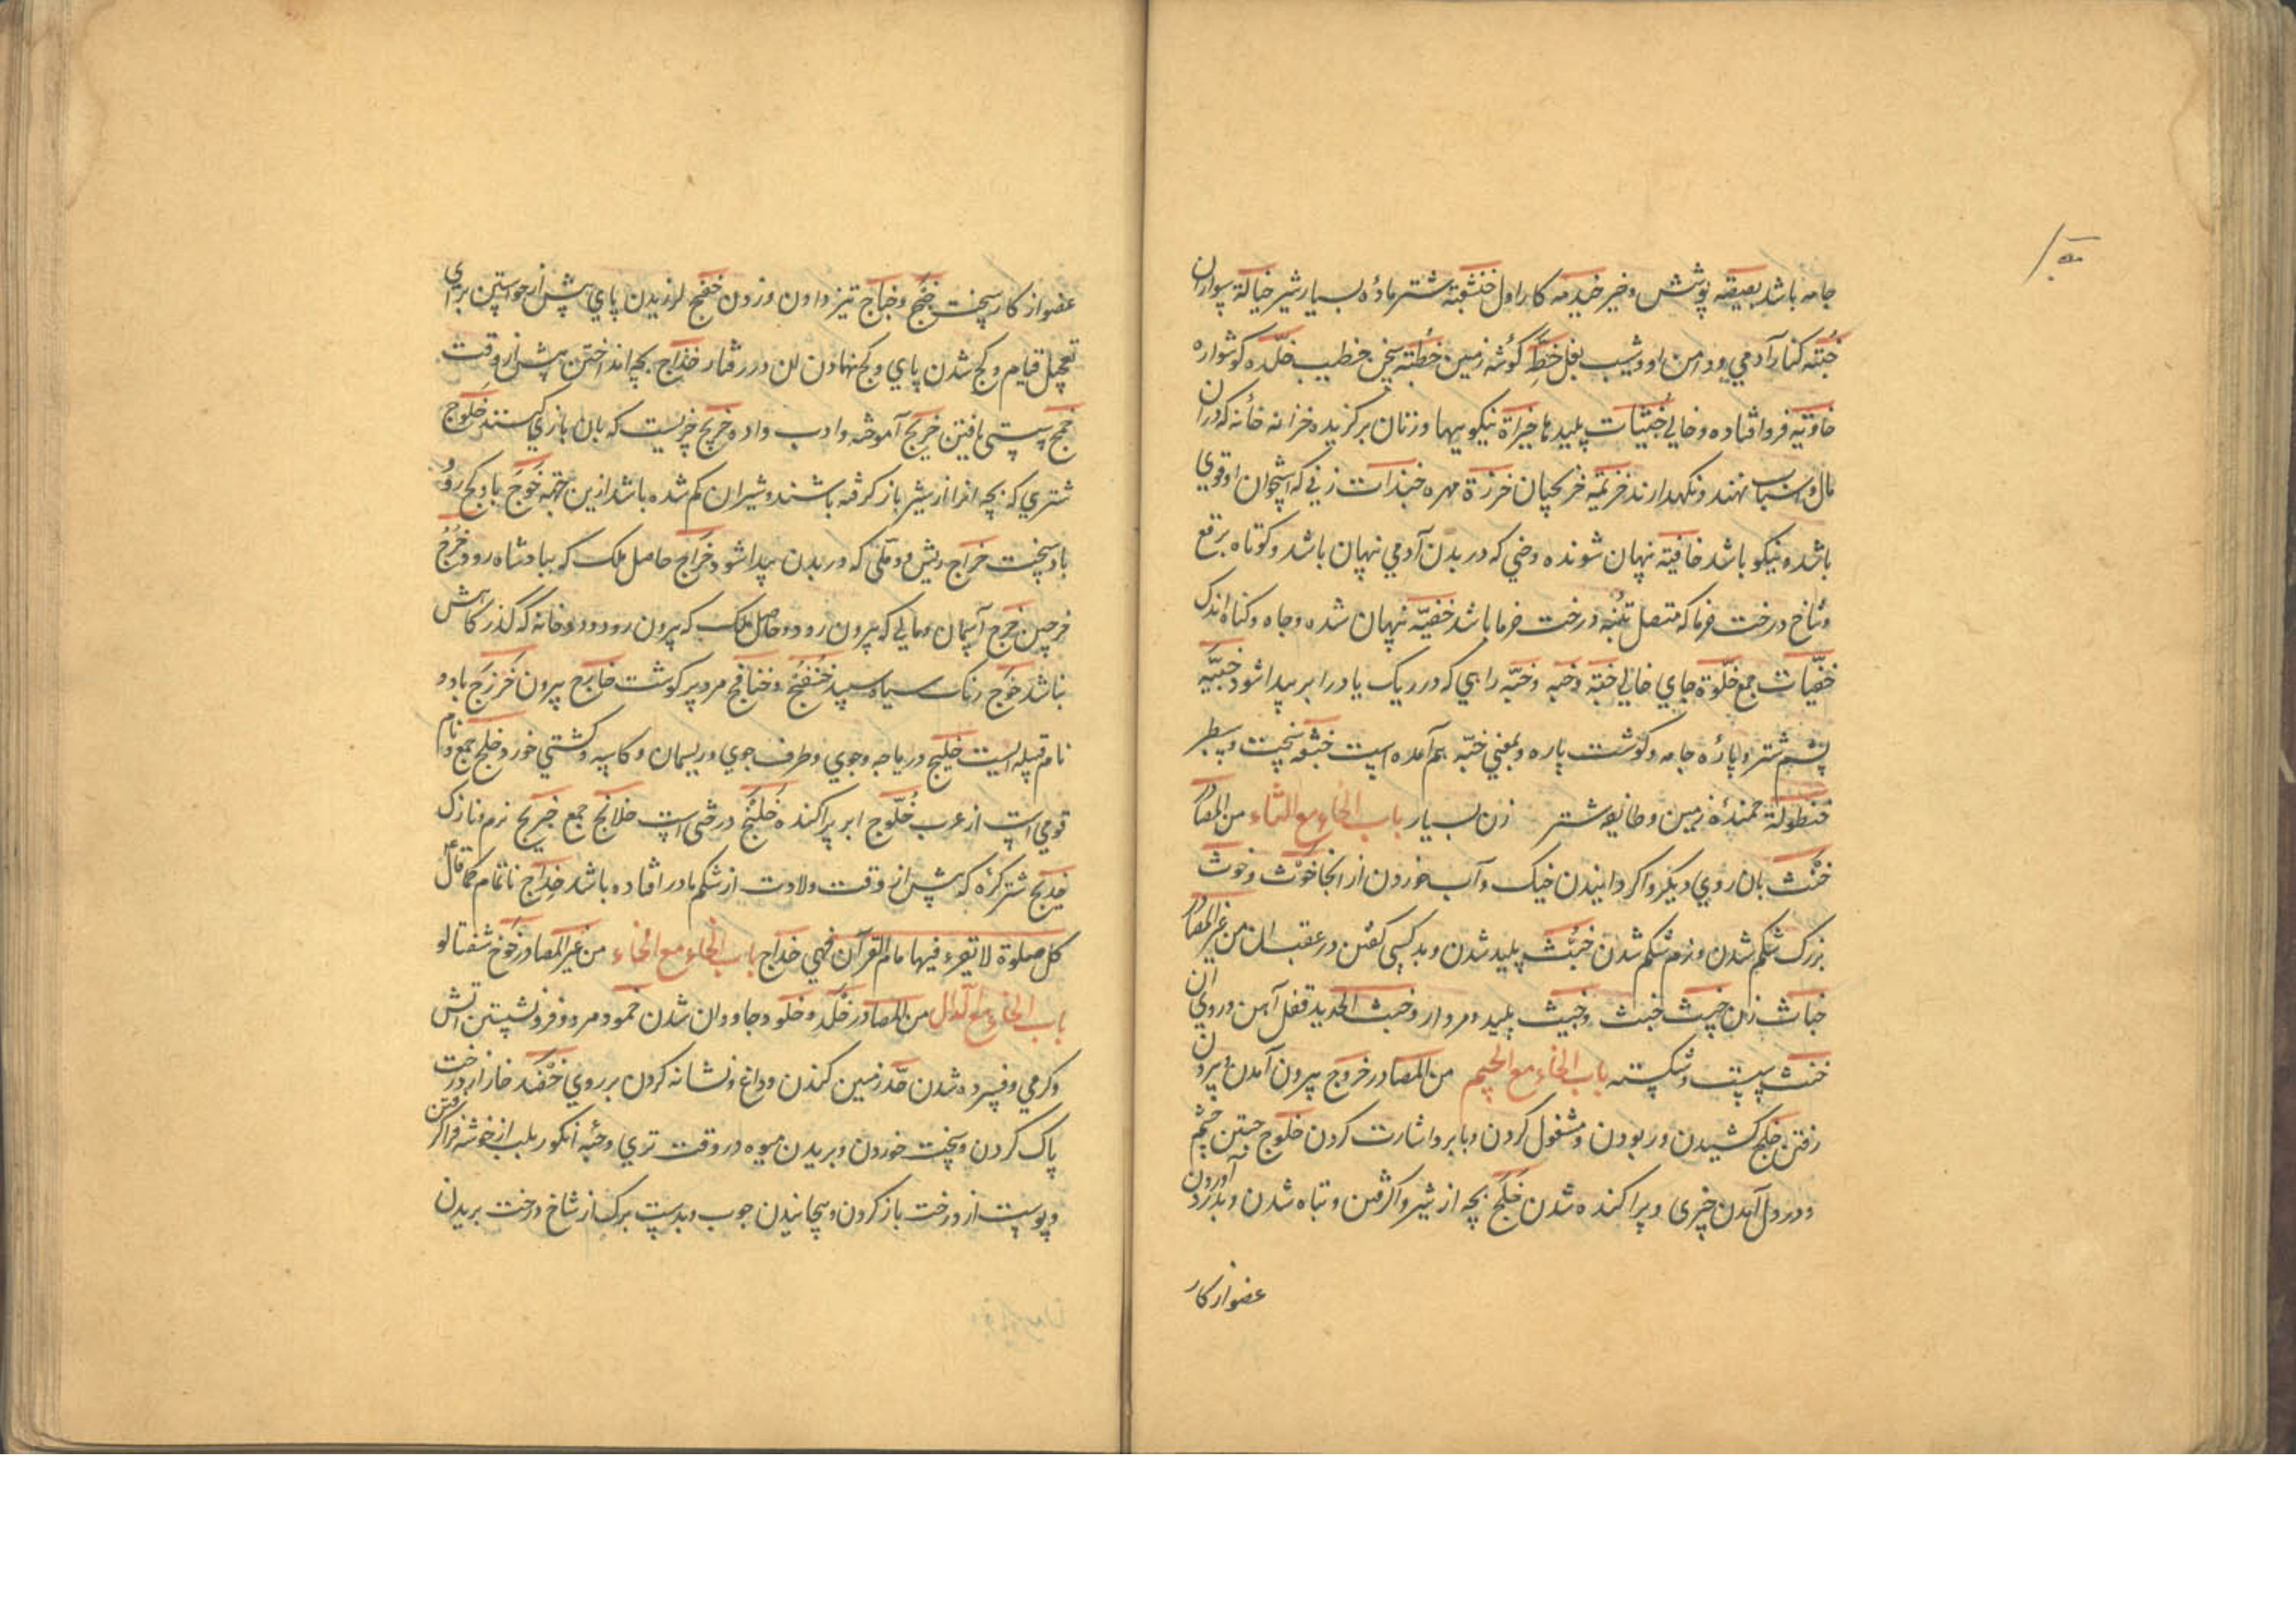 جامه باشد بعیقه پوشش و خیر خیدمه کار اول خنثعبته شتر ماده بسیار شیر خیاله سواران
خبنه کنار آدمی و دامن او و شیب بغل خط گوشه زمین خطبه سخن خطیب خلده گوشواره
خاویه فرو افتاده و خالی خبیثات پلیدیها خیراة نیکوییها و زنان برگزیده خزانه خانه که در آن
مال و اسباب نهند و نگهدارند خرزة مهره خبندات زنی که استخوان او قوی
باشد و نیکو باشد خافیه نهان شونده و جنی که در بدن آدمی نهان باشد و کوتاه برقع
و شاخ درخت خرما که متصل تنبه درخت خرما باشد خفیه نهان شده و جاه و گناه اندک
خفیات جمع خلوة جای خالی خقه و خبه و خبه راهی که در ریک یا در ابر پیدا شود خبیبه
پشم شتر و پاره جامه و گوشت پاره و بمعنی خبه هم آمده است سخت و سطبر
زمین و خایه شتر زن بسیار باب الخاء مع الثاء من المصادر
خنث بان روی دیگر واگردانیدن خیک و آب خوردن از انجا خوث و خوث
بزرگ شکم شدن و نرم شکم شدن خبث پلید شدن و بد کسی گفتن در عقب ان من غیر المصادر
خباث زن خبیث خبث و خبیث پلید و مردار و خبث الحدید قفل آهن و روی ان
خنث سست و شکسته باب الخاء مع الجیم من المصادر خروج بیرون آمدن و بیرون
رفتن خلج کشیدن و ربودن و مشغول کردن و بابرو اشارت کردن خلوج جستن چشم
و در دل آمدن چیزی و پراکنده شدن خلج بچه از شیر واگرفتن و تباه شدن و بدرد آوردن
عضو از کار
عضو از کار سخت خفج و خباج تیز دادن و زدن خفج لرزیدن پای پیش از خواستن برای
تعجیل قیام و کج شدن پای و کج نهادن ان در رفتار خداج بچه انداختن پیش از وقت
خمج سستی یافتن خریج آموخته و ادب داده خریج چیزیست که بان بازی کنند خلوج
شتری که بچه او را از شیر باز گرفته باشند و شیر ان کم شده باشد ازین جهه خوج باد کج رو
باد سخت خراج ریش و دملی که در بدن پیدا شود خراج حاصل ملک که بپادشاه رود خرج
خرجین خرج آسمان و مالی که بیرون رود و حاصل ملک که بیرون رود و رودخانه که گذر کاهش
نباشد خوج رنک سیاه سپید خنفج و خنافج مرد پر گوشت خارج بیرون خزرج باد و
نام قبیله ایست خلیج دریاچه و جوی و طرف جوی و ریسمان و کاسه و کشتی خورد خلج جمع و نام
قومی است از عرب خلوج ابر پراکنده خلنج درختی است خلانج جمع خریج نرم و نازک
خدیج شتر کره که پیش از وقت ولادت از شکم مادر افتاده باشد خداج ناتمام کما قال
کل صلوة لا تقرء فیها بام القرآن فهی خداج باب الخاء مع الخاء من غیر المصادر خوخ شفتالو
باب الخاء مع الدال من المصادر خلد و خلود جاودان شدن خمود مردن و فرو نشستن آتش
و گرمی و فسرده شدن خد زمین کندن و داغ و نشانه کردن بر روی خضد خار از درخت
پاک کردن و سخت خوردن و بریدن میوه در وقت تری و حبه انگور بلب از خوشه فرا گرفتن
و پوست از درخت باز کردن و پیچانیدن چوب و بدست برک از شاخ درخت بریدن